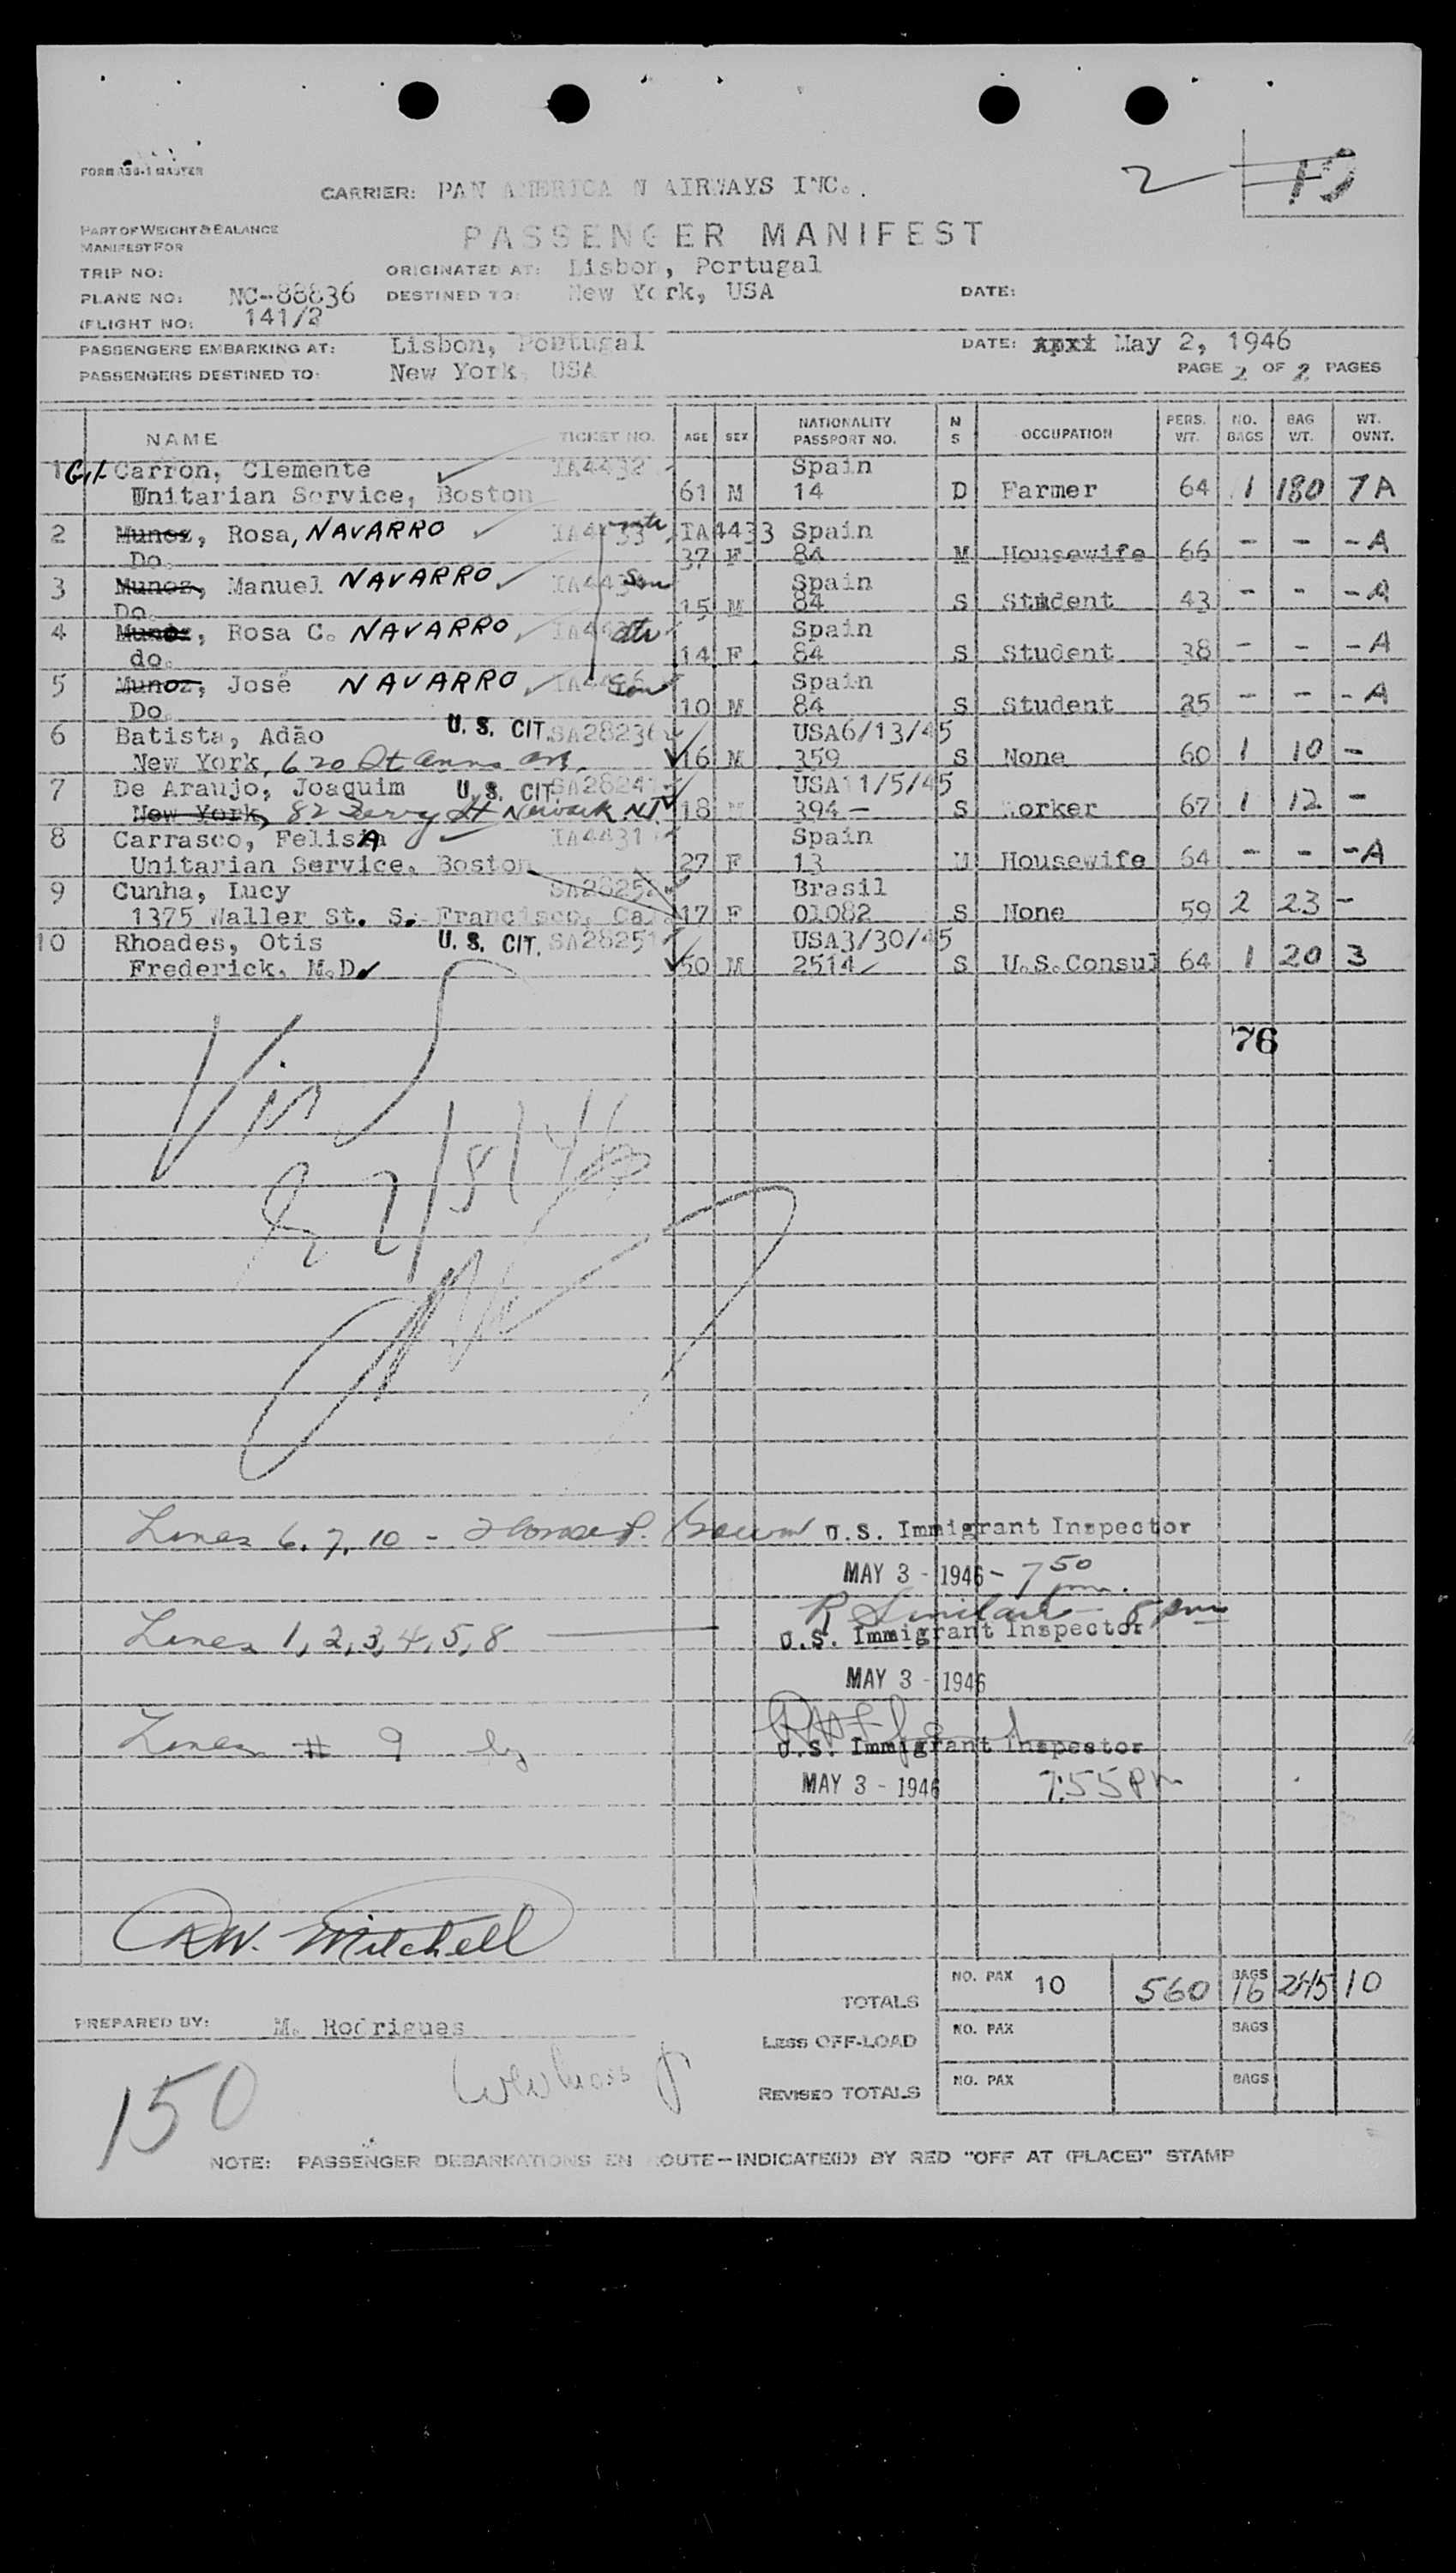 FORM 136-1 MASTER
CARRIER: PAN AMERICAN AIRWAYS INC.
2
PART OF WEIGHT & BALANCE
MANIFEST FOR
PASSENGER MANIFEST
TRIP NO: ORIGINATED AT: Lisbon, Portugal
PLANE NO: NC-88836 DESTINED TO: New York, USA DATE:
(FLIGHT NO: 141/2
PASSENGERS EMBARKING AT: Lisbon, Portugal DATE: Apxi May 2, 1946
PASSENGERS DESTINED TO: New York, USA PAGE 2 OF 2 PAGES
NAME TICKET NO. AGE SEX NATIONALITY PASSPORT NO. N S OCCUPATION PERS. WT. NO. BAGS BAG WT. WT. OVNT.
1 Gil Carron, Clemente IA4432 Spain
Unitarian Service, Boston 61 M 14 D Farmer 64 1 180 7A
2 Munoz, Rosa, NAVARRO IA4433 IA4433 Spain
Do. 37 F 84 M Housewife 66 - - -A
3 Munoz, Manuel NAVARRO Son Spain
Do. 15 M 84 S Student 43 - - -A
4 Munoz, Rosa C. NAVARRO dtr Spain
do. 14 F 84 S Student 38 - - -A
5 Munoz, José NAVARRO Son Spain
Do. 10 M 84 S Student 35 - - -A
6 Batista, Adão U. S. CIT. SA28236 USA6/13/45
New York, 620 St Anns Av. 16 M 359 S None 60 1 10 -
7 De Araujo, Joaquim U. S. CIT. SA28241 USA11/5/45
New York, 82 Ferry St Newark NJ 18 M 394- S Worker 67 1 12 -
8 Carrasco, FelisiA IA4431 Spain
Unitarian Service, Boston 27 F 13 M Housewife 64 - - -A
9 Cunha, Lucy SA28252 Brasil
1375 Waller St. S. Francisco, Cal 17 F 01082 S None 59 2 23 -
10 Rhoades, Otis U. S. CIT. SA28251 USA3/30/45
Frederick, M.D. 50 M 2514 S U.S.Consul 64 1 20 3
76
Lines 6, 7, 10 - U.S. Immigrant Inspector
MAY 3 - 1946 - 7 50 pm.
R Sinclair 8 pm
Lines 1, 2, 3, 4, 5, 8 U.S. Immigrant Inspector
MAY 3 - 1946
Lines # 9 by
U.S. Immigrant Inspector
MAY 3 - 1946 7:55 Pm
RW. Mitchell
TOTALS NO. PAX 10 560 BAGS 16 245 10
PREPARED BY: M. Rodrigues
LESS OFF-LOAD NO. PAX BAGS
REVISED TOTALS NO. PAX BAGS
150
NOTE: PASSENGER DEBARKATIONS EN ROUTE—INDICATE(D) BY RED "OFF AT (PLACE)" STAMP